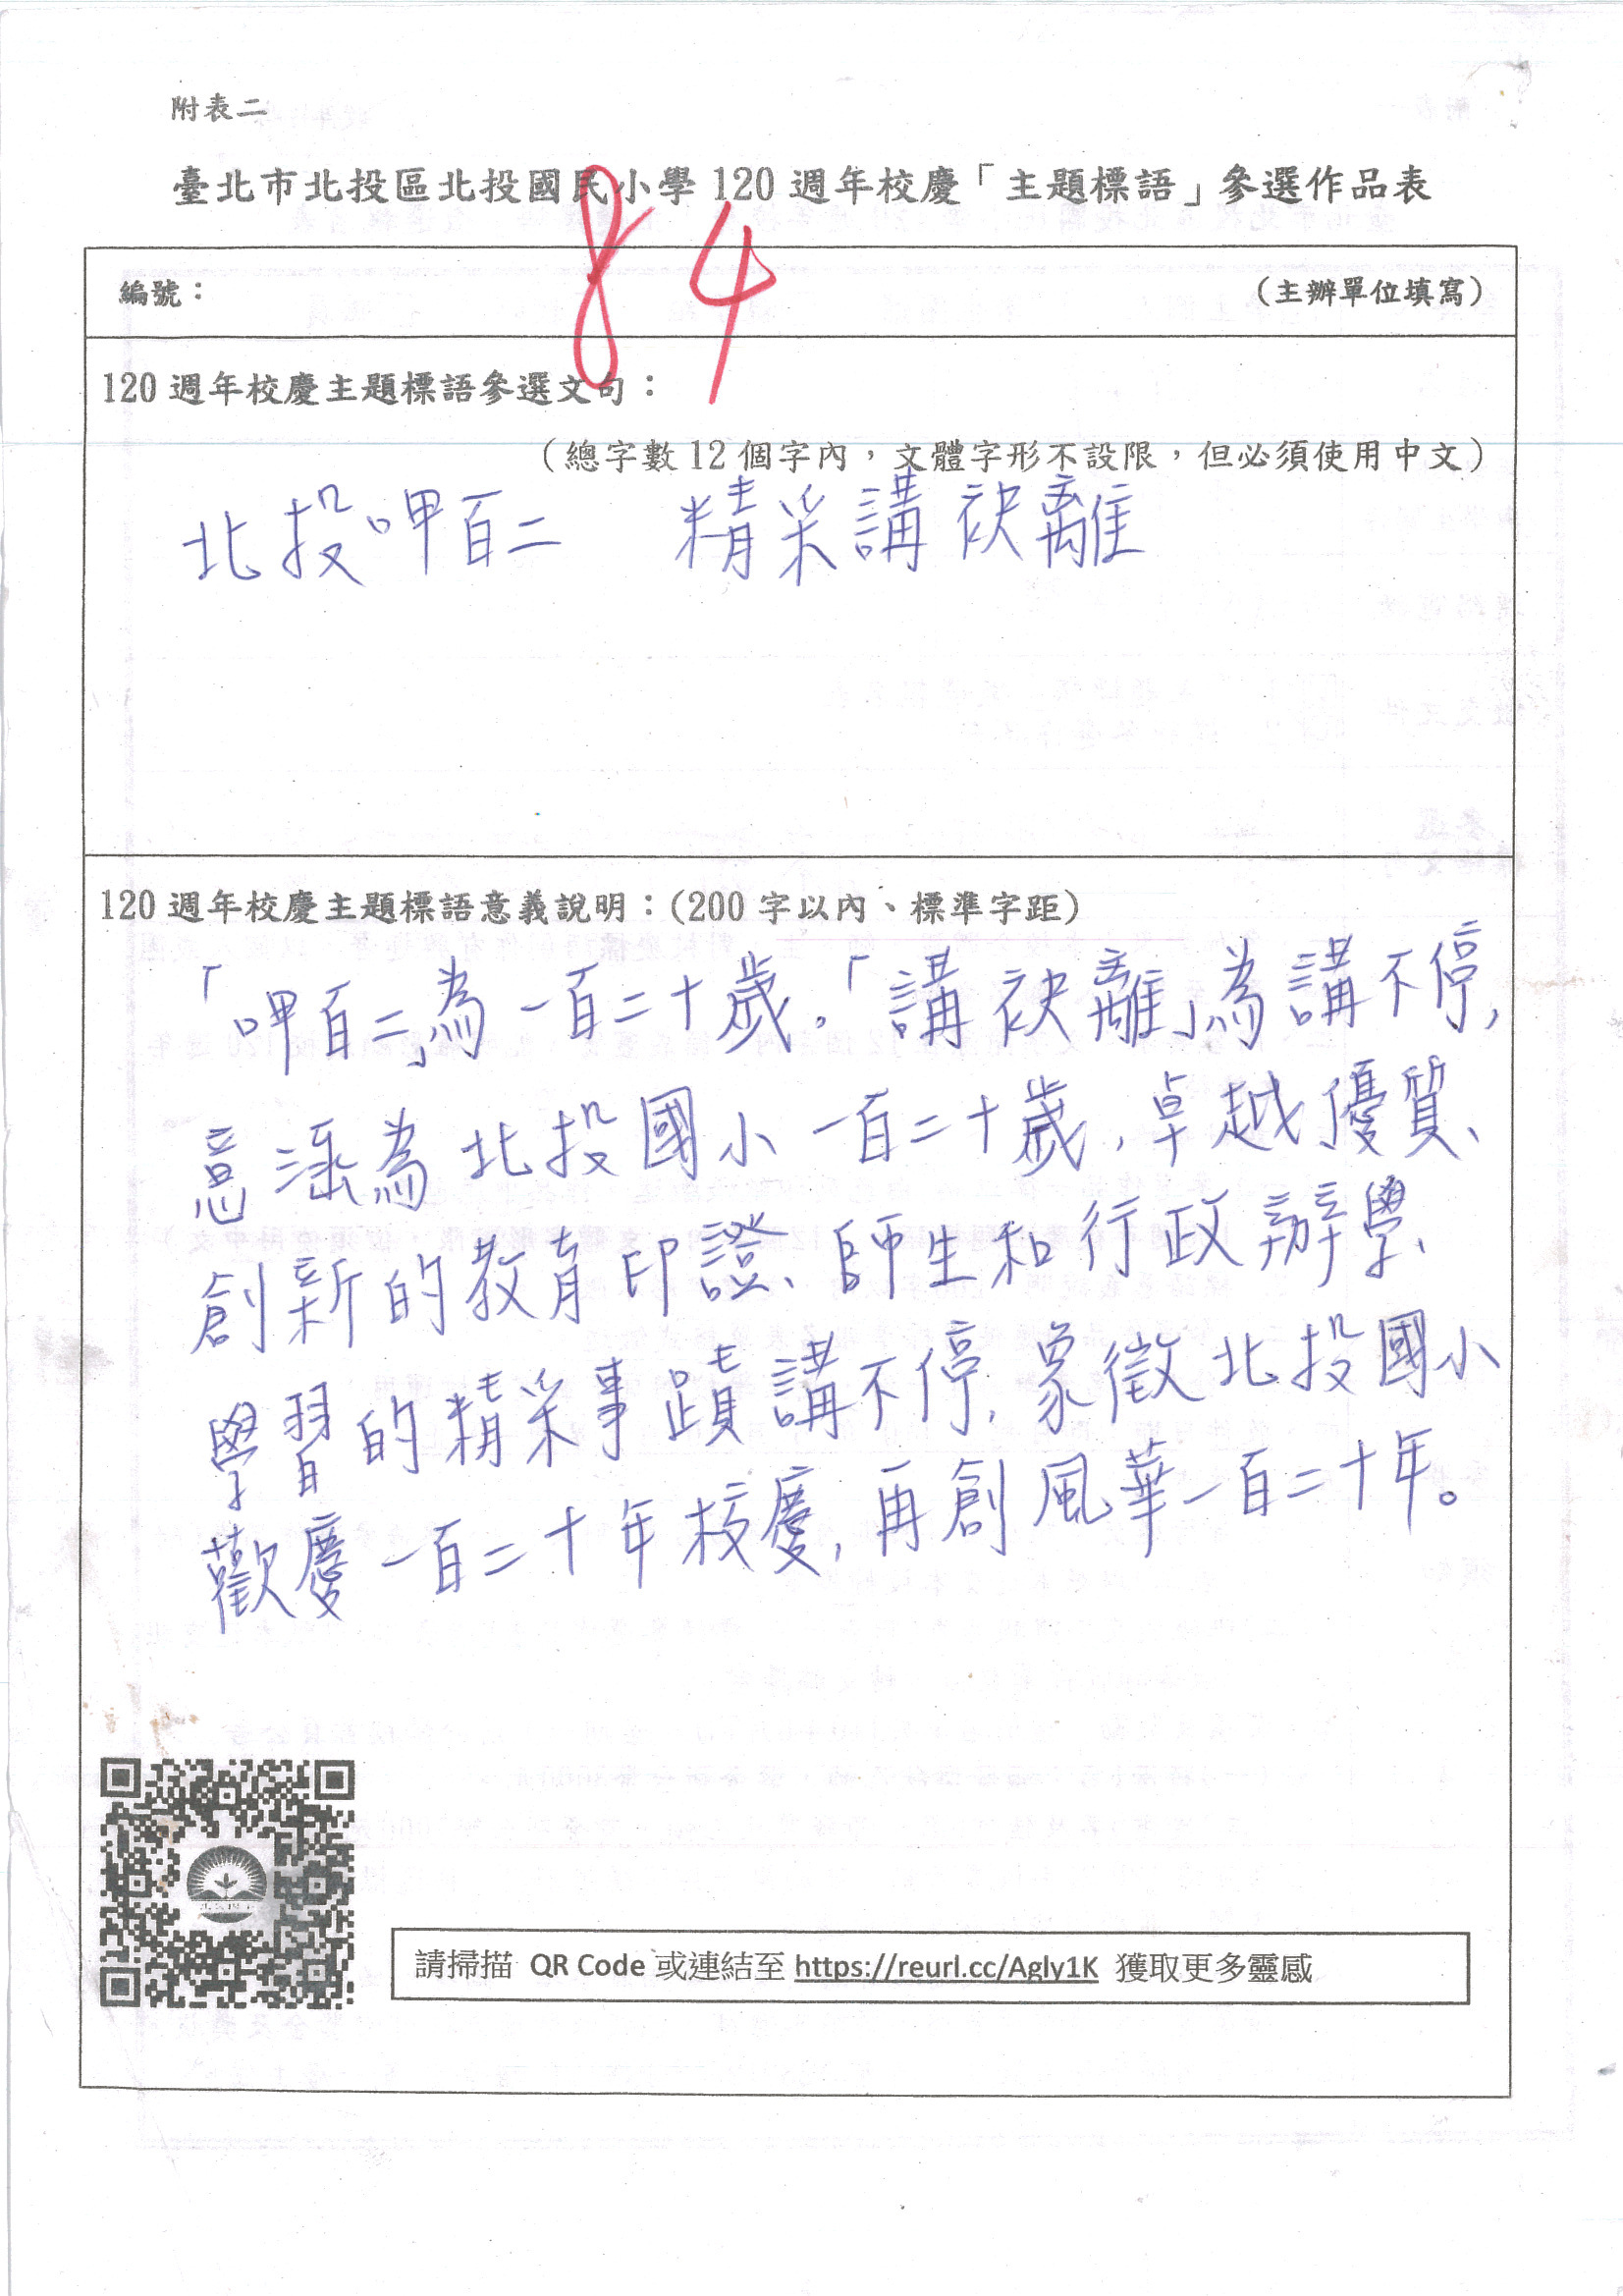 附表二
臺北市北投區北投國民小學 120 週年校慶「主題標語」參選作品表
84
編號：
（主辦單位填寫）
120 週年校慶主題標語參選文句：
（總字數 12 個字內，文體字形不設限，但必須使用中文）
北投呷百二 精采講袂離
120 週年校慶主題標語意義說明：(200 字以內、標準字距)
「呷百二」為一百二十歲,「講袂離」為講不停,
意涵為北投國小一百二十歲,卓越優質、
創新的教育印證、師生和行政辦學、
學習的精采事蹟講不停,象徵北投國小
歡慶一百二十年校慶,再創風華一百二十年。
請掃描 QR Code 或連結至 https://reurl.cc/Agly1K 獲取更多靈感